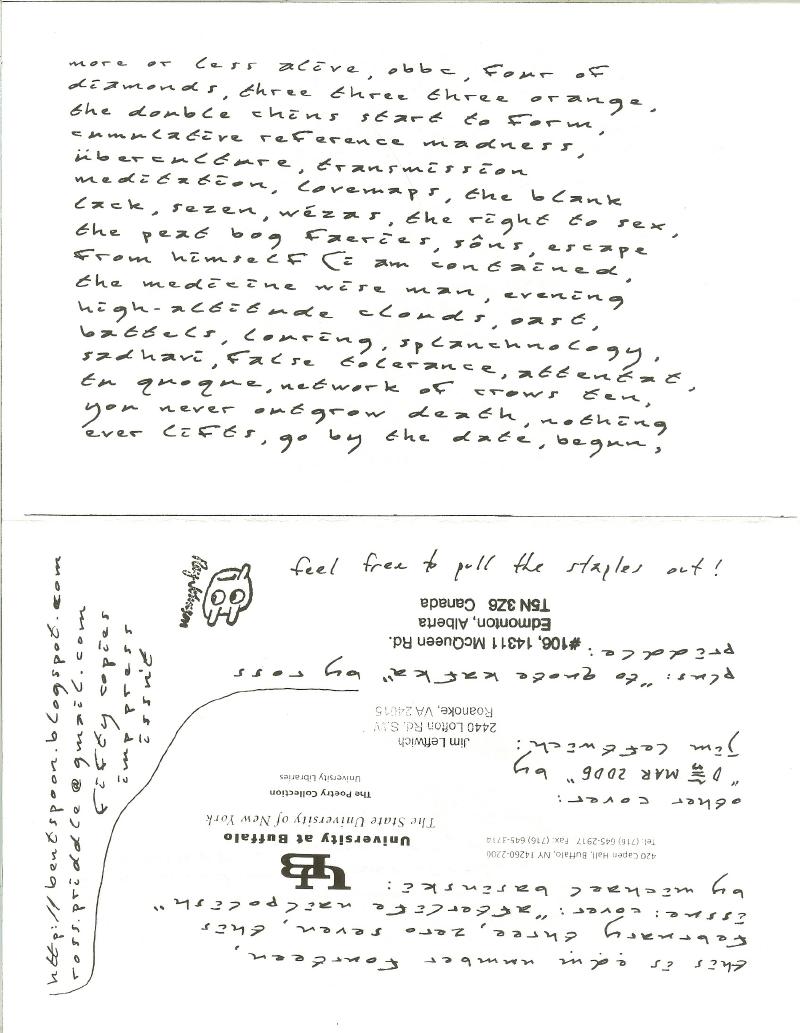 more or less alive, obbc, four of
diamonds, three three three orange,
the double chins start to form,
cumulative reference madness,
überculture, transmission
meditation, lovemaps, the blank
lack, sezen, wézas, the right to sex,
the peat bog faeries, sôns, escape
from himself (i am contained,
the medicine wise man, evening
high-altitude clouds, oast,
battels, louring, splanchnology,
sadhavi, false tolerance, attentat,
tu quoque, network of crows ten,
you never outgrow death, nothing
ever lifts, go by the date, begun,
feel free to pull the staples out!
this is number fourteen,
february three, zero seven, this
issue: cover: "afterlife nailpolish"
by michael basinski:
UB
University at Buffalo
The State University of New York
420 Capen Hall, Buffalo, NY 14260-2200
Tel: (716) 645-2917 Fax: (716) 645-3714
The Poetry Collection
University Libraries
other cover:
"D MAR 2006" by
jim leftwich:
Jim Leftwich
2440 Lofton Rd. S.W
Roanoke, VA 24015
plus: "to quote kafka" by ross
priddle:
#106, 14311 McQueen Rd.
Edmonton, Alberta
T5N 3Z8 Canada
http://bentspoon.blogspot.com
ross.priddle@gmail.com
fifty copies
imp press
issuit